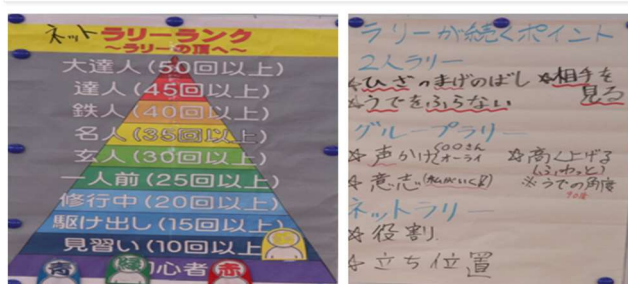 ネットラリーランク
～ラリーの頂へ～
大達人(50回以上)
達人(45回以上)
鉄人(40回以上)
名人(35回以上)
玄人(30回以上)
一人前(25回以上)
修行中(20回以上)
駆け出し(15回以上)
見習い(10回以上
青 緑 心者 赤
ラリーが続くポイント
2人ラリー
☆ひざのまげのばし ☆相手を
見る
☆うでをふらない
グループラリー
☆声かけ ○○さん
オーライ
☆高く上げる
(ふわっと)
☆意志(私がいく!)
※うでの角度
ネットラリー
☆役割
☆立ち位置